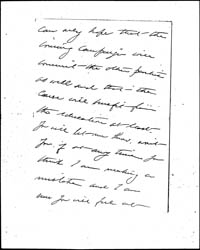 can only hope that the
coming campaign will
commit the older parties
as well and that in the
Cause will benefit from
the education at least
you will let me then, wait
for, if at any time you
think I am making a
mistake and I am
sure you will feel at